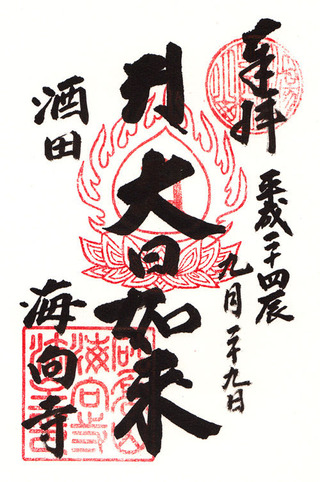 奉拝
平成二十四辰
九月二十九日
大日如来
酒田
海向寺